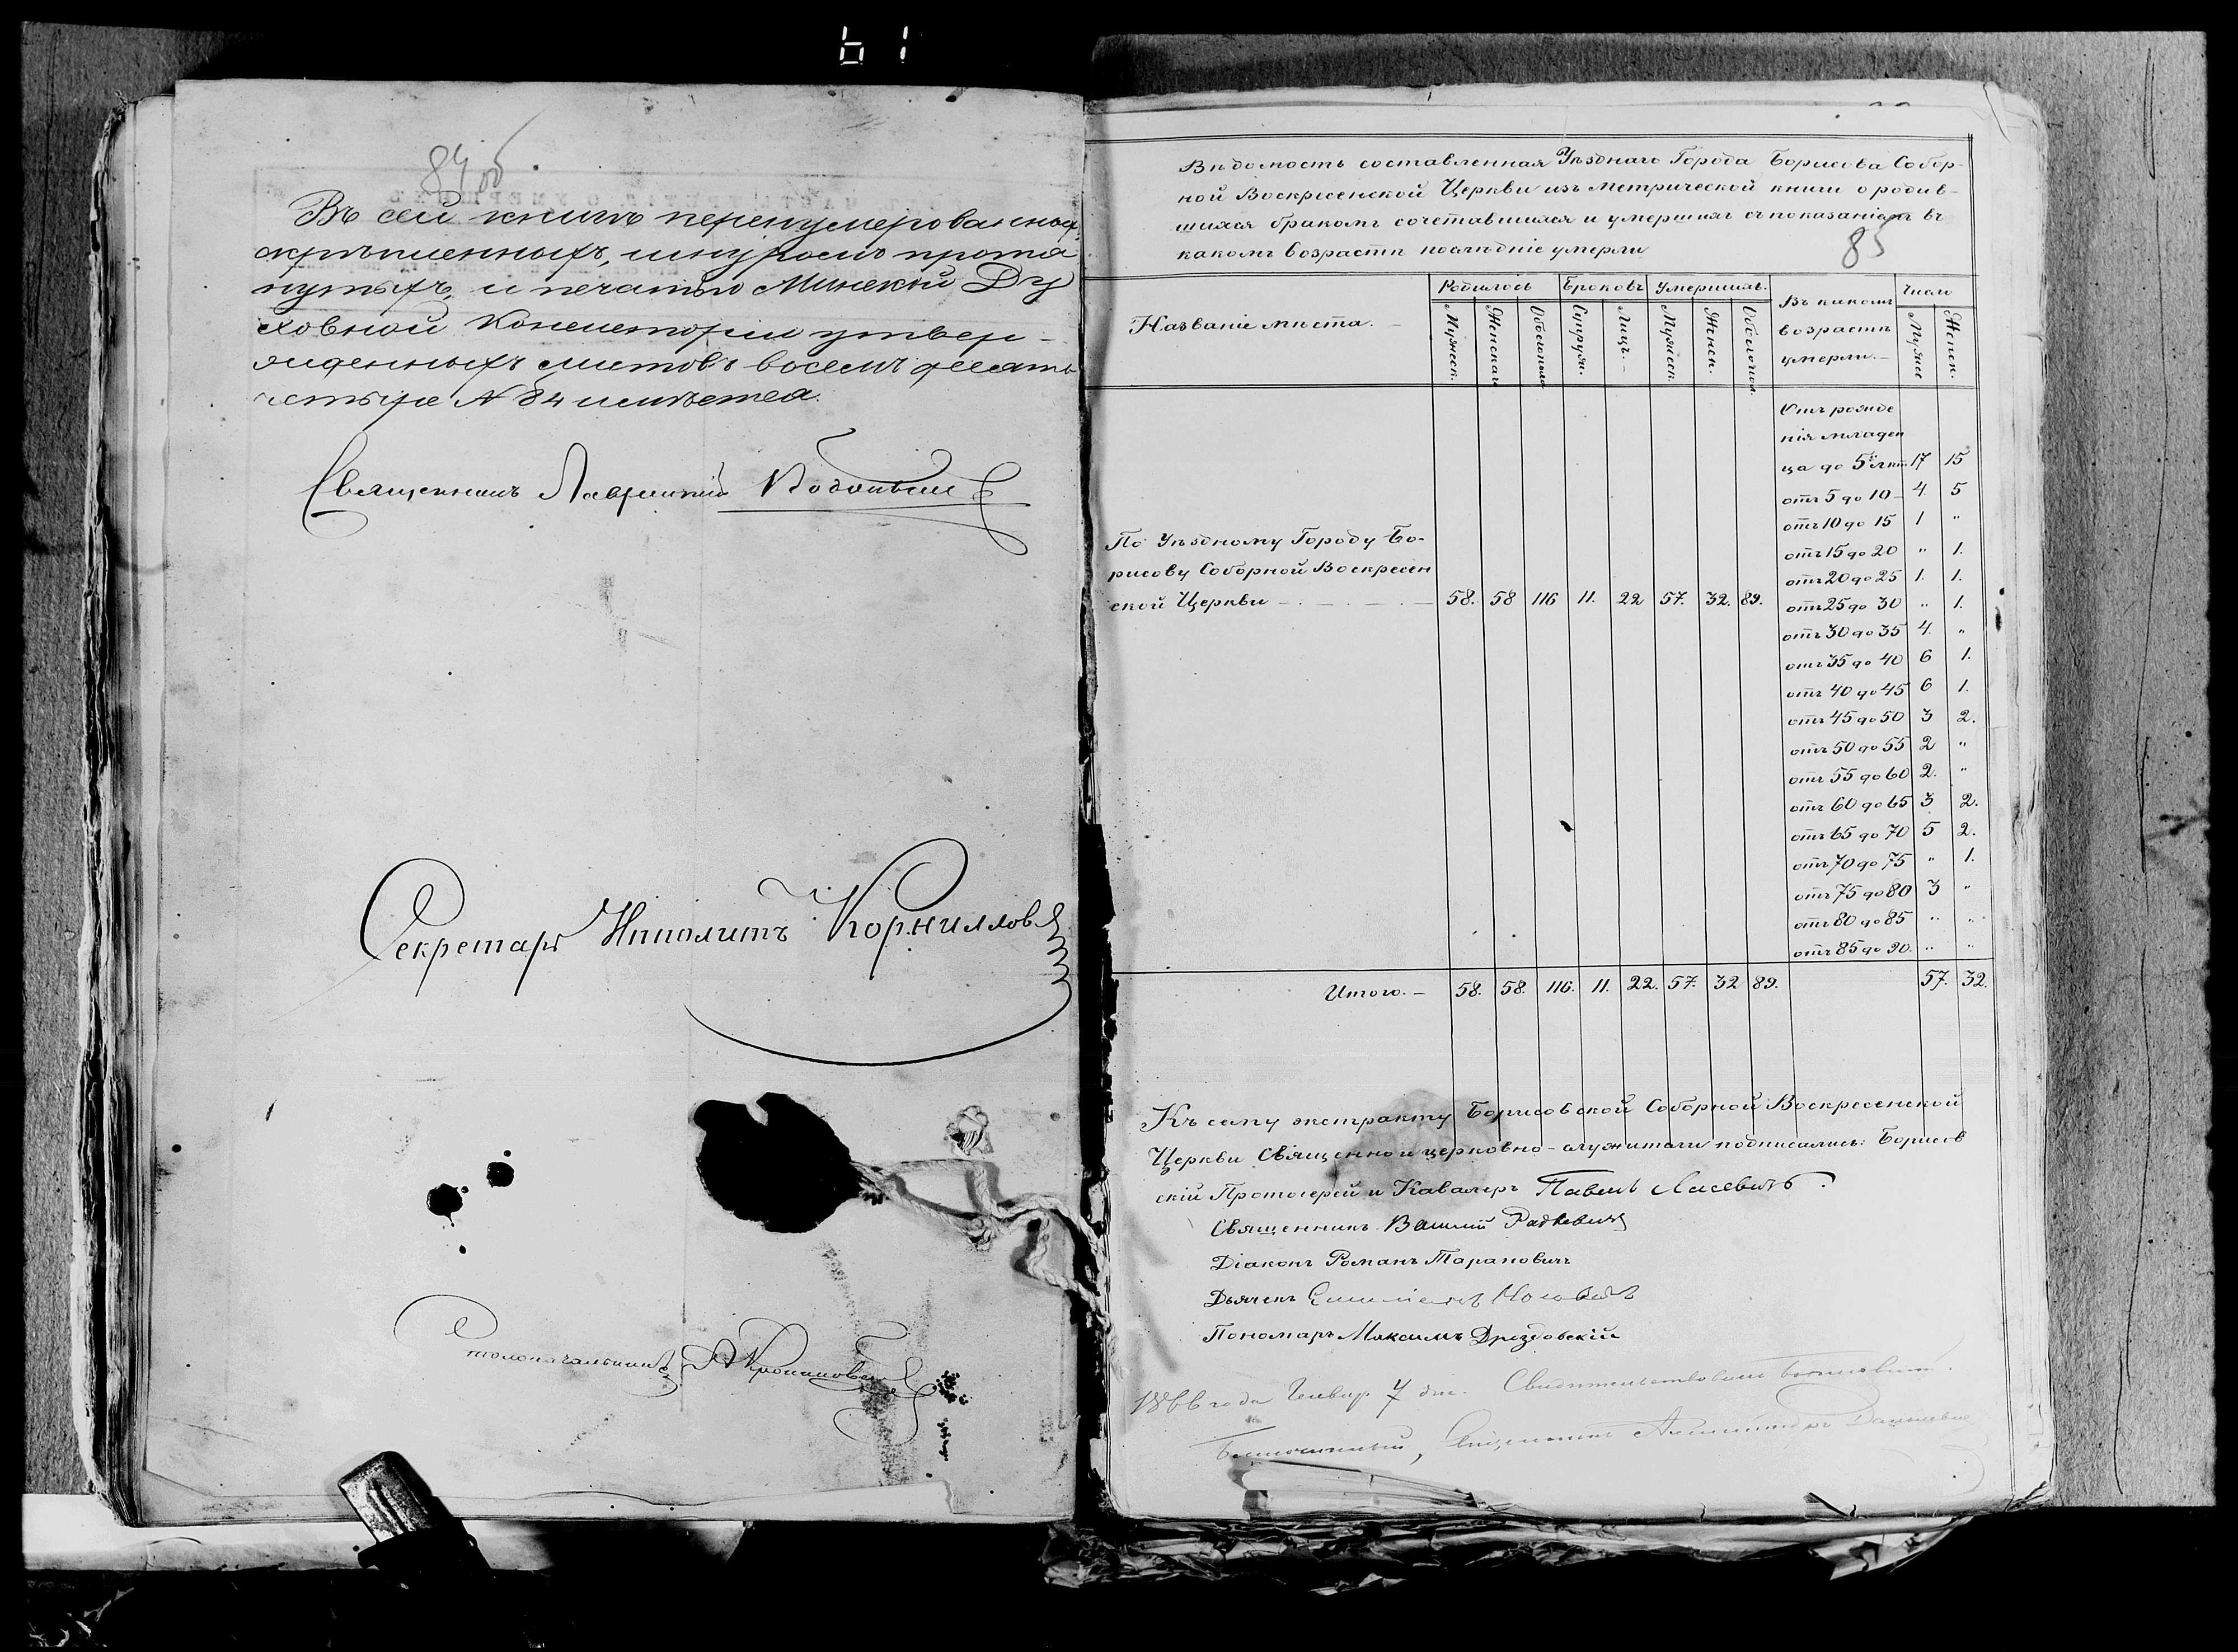 61
84 об
Въ сей книгѣ перенумерованныхъ,
скрѣпленныхъ, шнуромъ протя
нутыхъ, и печатью Минской Ду
ховной Консисторіи утвер-
жденныхъ листовъ восемъ десять
четыре № 84 имѣется.
Священникъ
Секретарь Ипполитъ Корниловъ
Столоначальникъ
Вѣдомость составленная Уѣзднаго Города Борисова Собор-
ной Воскресенской Церкви изъ Метрической книги о родив-
шихся бракомъ сочетавшихся и умершихъ съ показаніемъ въ
какомъ возрастѣ послѣдніе умерли
85
Названіе мѣста. Родилось Браковъ Умершихъ. Въ какомъ возрастѣ умерли. Число
Мужеск. Женскаго Обоегопола Супруж. Лицъ. Мужеск. Женск. Обоегопол. Мужес Женск.
Отъ рожде
нія младен
ца до 5 лѣт 17 15
отъ 5 до 10 4. 5
отъ 10 до 15 1 "
отъ 15 до 20 " 1.
отъ 20 до 25 1. 1.
По Уѣздному Городу Бо-
рисову Соборной Воскресен
ской Церкви 58. 58 116 11. 22 57. 32. 89.
отъ 25 до 30 " 1.
отъ 30 до 35 4. "
отъ 35 до 40 6 1.
отъ 40 до 45 6 1.
отъ 45 до 50 3 2.
отъ 50 до 55 2 "
отъ 55 до 60 2. "
отъ 60 до 65 3 2.
отъ 65 до 70 5 2.
отъ 70 до 75 " 1.
отъ 75 до 80 3 "
отъ 80 до 85 " "
отъ 85 до 90. " "
Итого. — 58. 58. 116. 11. 22. 57. 32 89. 57. 32.
Къ сему экстракту Борисовской Соборной Воскресенской
Церкви Священно и церковно-служители подписались: Борисов
скій Протоіерей и Кавалеръ Павелъ
Священникъ Василій Радкевичъ
Діаконъ Романъ Тарановичъ
Дьячекъ
Пономарь Максимъ Дроздовскій
1866 года Генвар 7 дня. Свидѣтельствовалъ
Благочинный, Священникъ